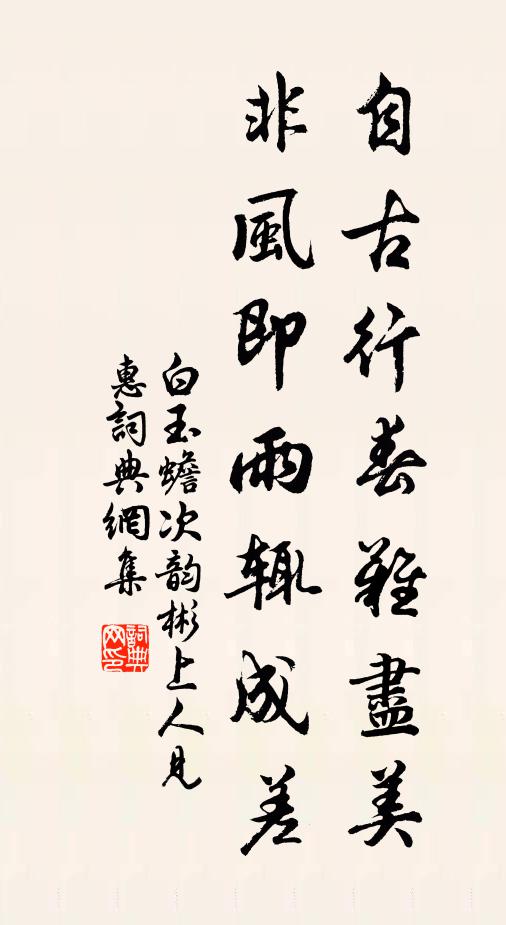 自古行春難盡美
非風即雨輙成差
白玉蟾次韵彬上人見
惠詞典網集
詞典
网